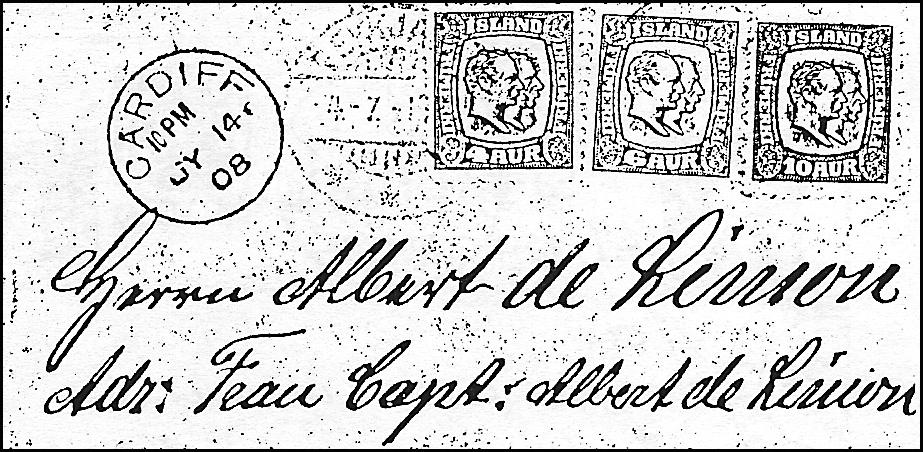 CARDIFF
10 PM
JY 14
08
ISLAND
4 AUR
ISLAND
6 AUR
ISLAND
10 AUR
Herrn Albert de Limon
Adr: Frau Capt: Albert de Limon